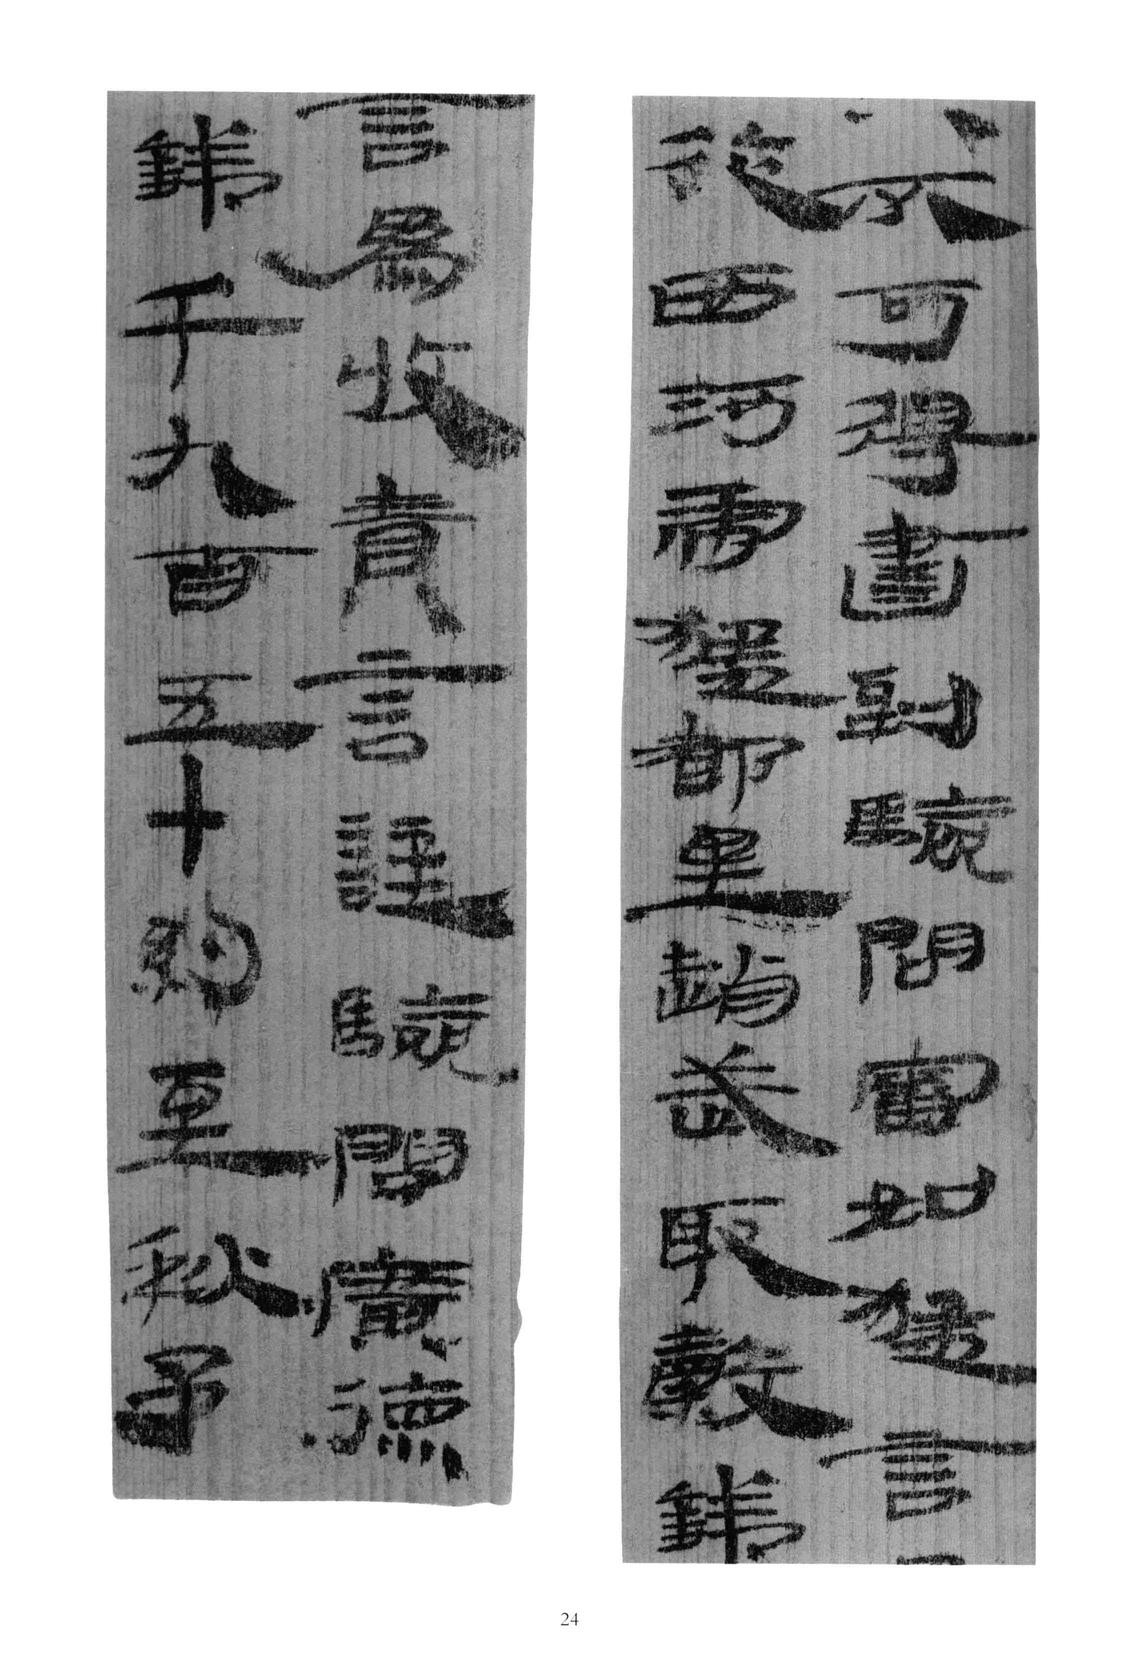 不可得書到驗問審如猛言
從西河虎猛都里趙武取穀錢
言為收責言謹驗問廣德
錢千九百五十約至秋予
24